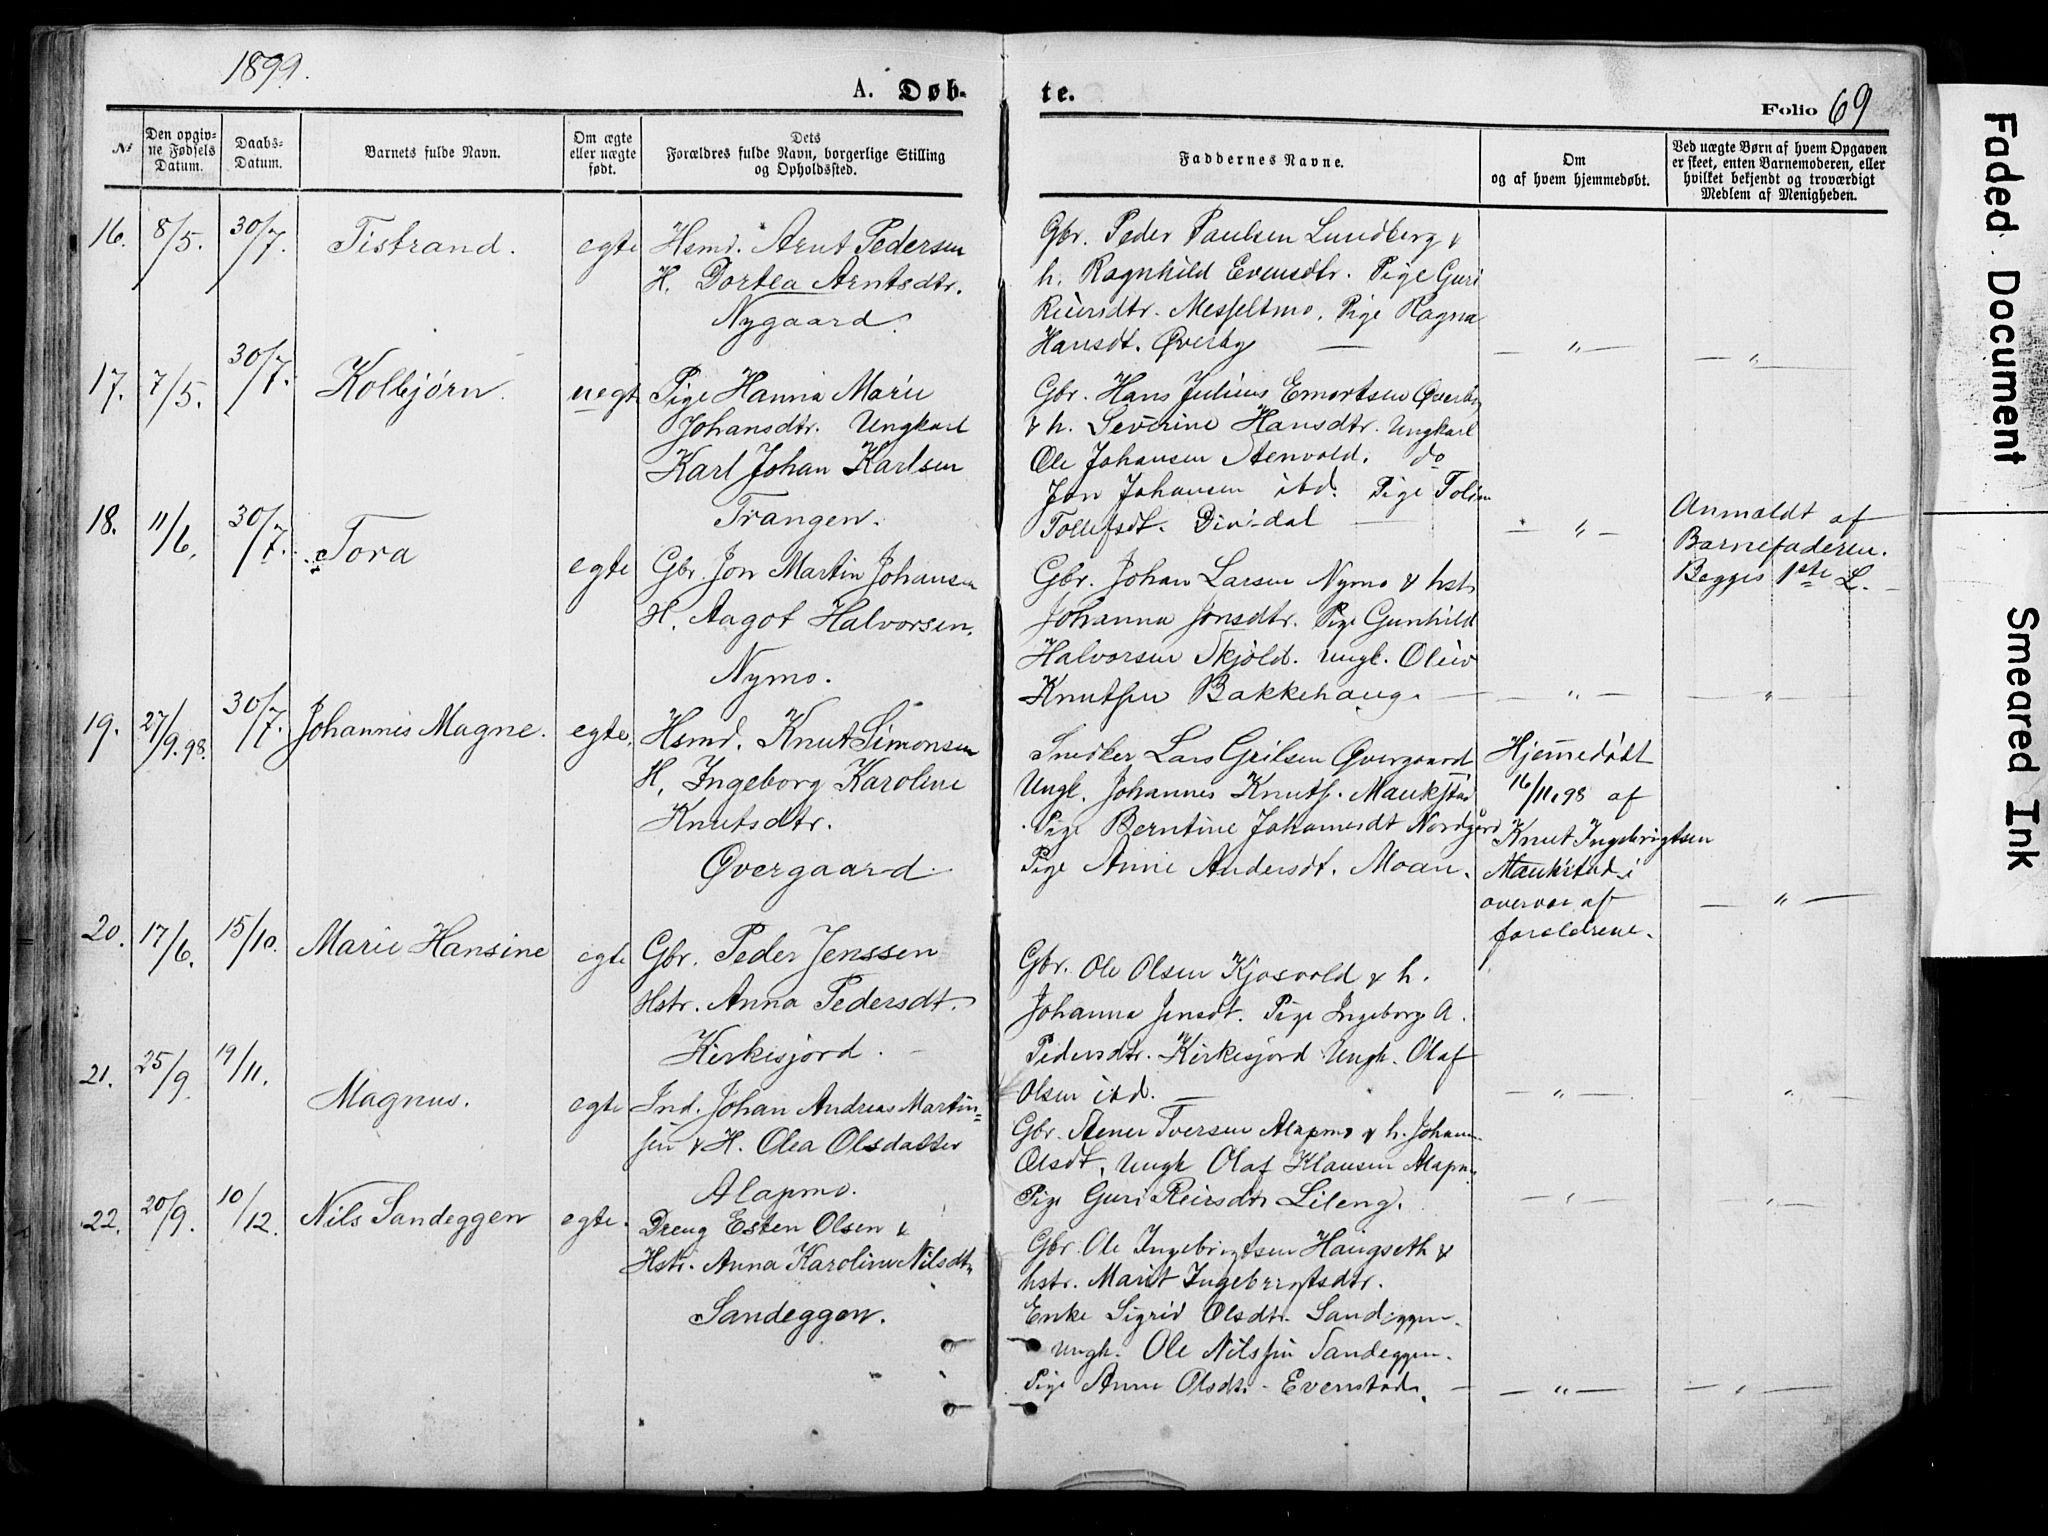 1899.
A. Døb-
te.
Folio 69
№
Den opgiv-
ne Fødsels
Datum.
Daabs-
Datum.
Barnets fulde Navn.
Om ægte
eller uægte
født.
Dets
Forældres fulde Navn, borgerlige Stilling
og Opholdssted.
Faddernes Navne.
Om
og af hvem hjemmedøbt.
Ved uægte Børn af hvem Opgaven
er skeet, enten Barnemoderen, eller
hvilket bekjendt og troværdigt
Medlem af Menigheden.
16. 8/5. 30/7. Tistrand. egte
Hsmd. Arnt Pedersen
H. Dortea Arntsdtr.
Nygaard.
Gbr. Peder Paulsen Lundberg &
h. Ragnhild Evensdtr. Pige Guri
Reiersdtr. Messeltmo. Pige Ragna
Hansdt. Øverby — — „ — — „ —
17. 7/5. 30/7. Kolbjørn. uegt
Pige Hanna Marie
Johansdtr. Ungkarl
Karl Johan Karlsen
Trangen.
Gbr. Hans Julius Emertsen Øverby
& h. Severine Hansdtr. Ungkarl
Ole Johansen Stenvold. do
Jon Johansen ibd. Pige
Tollefsdt. Dividal — — „ —
Anmeldt af
Barnefaderen.
Begges 1ste L.
18. 11/6. 30/7. Tora egte
Gbr. Jon Martin Johansen
H. Aagot Halvorsen.
Nymo.
Gbr. Johan Larsen Nymo & hstr
Johanna Jonsdtr. Pige Gunhild
Halvorsen Skjold. Ungk. Oleiv
Knutsen Bakkehaug. — — „ — — „ —
19. 27/9.98. 30/7. Johannes Magne. egte.
Hsmd. Knut Simonsen
H. Ingeborg Karoline
Knutsdtr.
Øvergaard.
Snedker Lars Øvergaard
Ungk. Johannes Knuts. Maukstad
Pige Berntine Johannesdt Nordgård
Pige Anne Andersdt. Moan.
Hjemmedøbt
16/11.98 af
Knut Ingebrigtsen
Maukstad i
overvær af
forældrene. — „ —
20. 17/6. 15/10. Marie Hansine egte
Gbr. Peder Jenssen
Hstr. Anna Pedersdt.
Kirkesjord. —
Gbr. Ole Olsen Kjosvold & h.
Johanna Jensdt. Pige Ingeborg A.
Pedersdtr. Kirkesjord Ungk. Olaf
Olsen ibd. — — „ — „
21. 25/9. 19/11. Magnus. egte
Ind. Johan Andreas Martin-
sen & H. Olea Olsdatter
Alapmo.
Gbr. Stener Iversen Alapmo & h. Johan
Olsdt. Ungk Olaf Klausen Alapm
Pige Guri Reiersdtr Lileng. — „ — „ —
22. 20/9. 10/12. Nils Sandeggen egte.
Dreng Esten Olsen &
Hstr. Anna Karoline Nilsdtr
Sandeggen.
Gbr. Ole Ingebrigtsen Haugseth &
hstr. Marit Ingebrigtsdtr.
Enke Sigrid Olsdtr. Sandeggen.
Ungk. Ole Nilssen Sandeggen.
Pige Anne Olsdtr. Evenstad. — — „ — — „ —
Faded Document
Smeared Ink